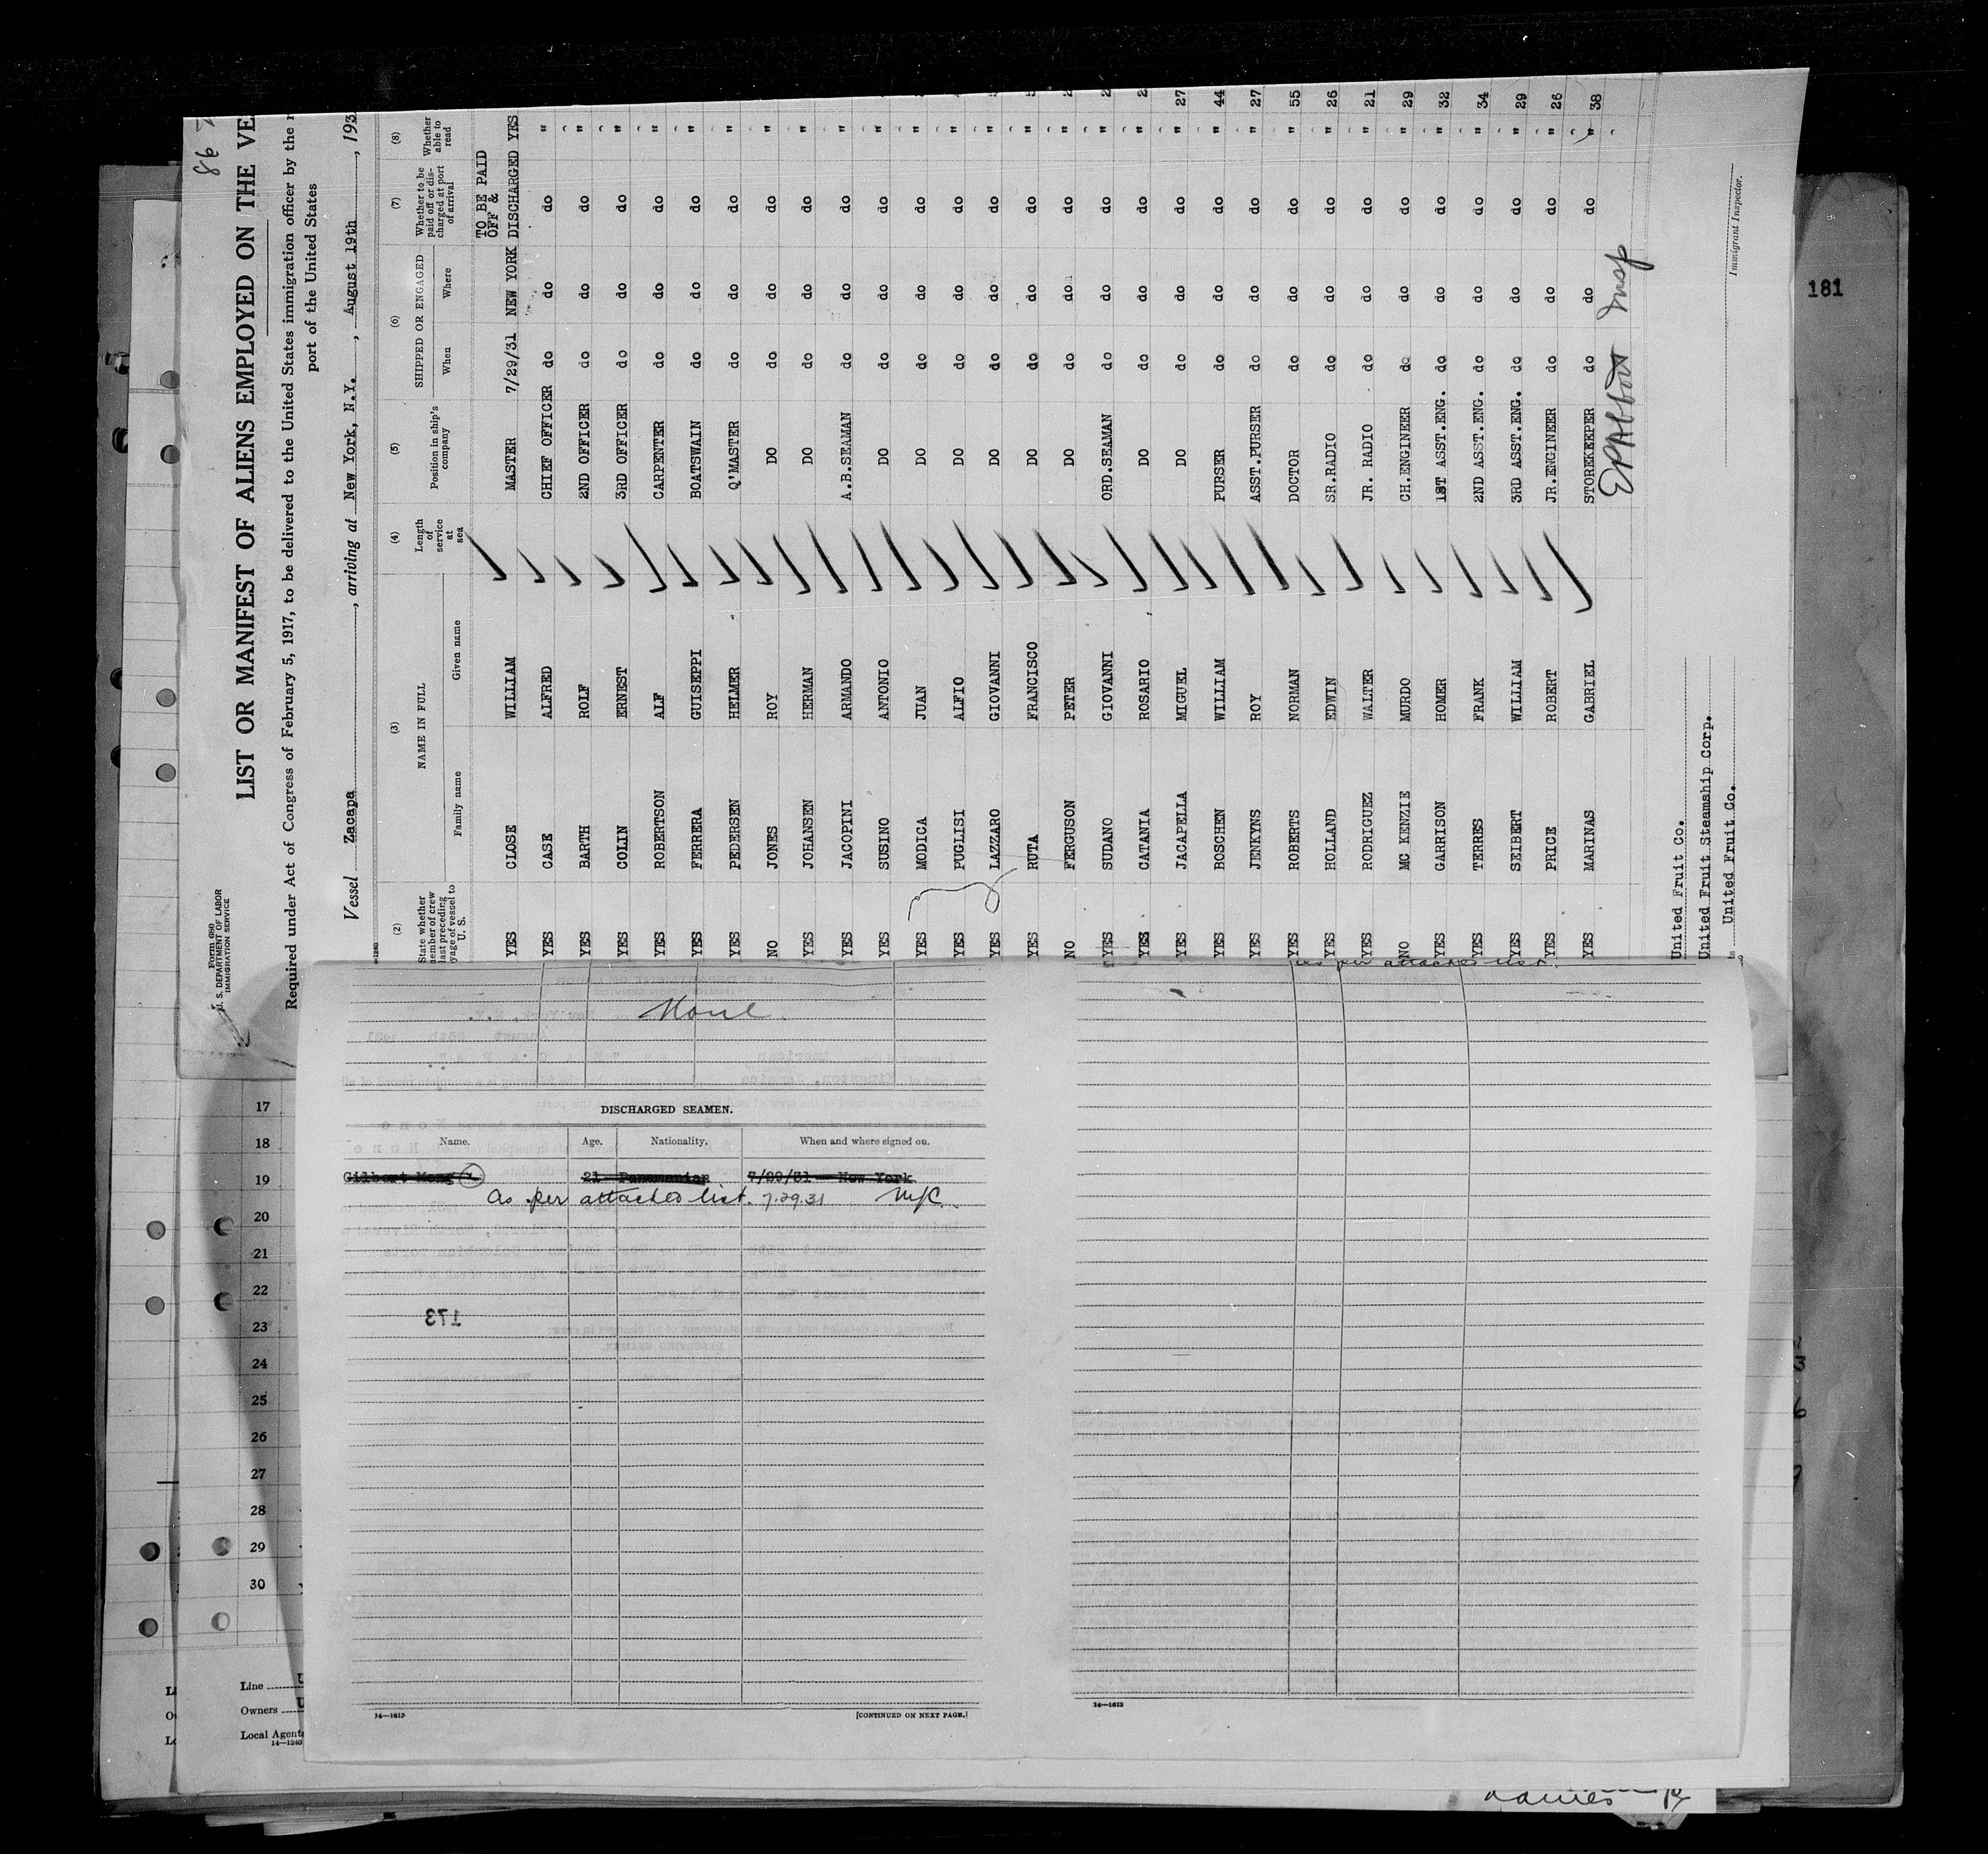 86
Form 680
U. S. DEPARTMENT OF LABOR
IMMIGRATION SERVICE
LIST OR MANIFEST OF ALIENS EMPLOYED ON THE VE
Required under Act of Congress of February 5, 1917, to be delivered to the United States immigration officer by the r
port of the United States
Vessel Zacapa, arriving at New York, N.Y., August 19th, 193
(2) (3) (4) (5) (6) (7) (8)
State whether member of crew last preceding voyage of vessel to U. S. NAME IN FULL Length of service at sea Position in ship's company SHIPPED OR ENGAGED Whether to be paid off or discharged at port of arrival Whether able to read
Family name Given name When Where
TO BE PAID
OFF &
YES CLOSE WILLIAM MASTER 7/29/31 NEW YORK DISCHARGED YES
YES CASE ALFRED CHIEF OFFICER do do do "
YES BARTH ROLF 2ND OFFICER do do do "
YES COLIN ERNEST 3RD OFFICER do do do "
YES ROBERTSON ALF CARPENTER do do do "
YES FERRERA GUISEPPI BOATSWAIN do do do "
YES PEDERSEN HELMER Q'MASTER do do do "
NO JONES ROY DO do do do "
YES JOHANSEN HERMAN DO do do do "
YES JACOPINI ARMANDO A.B.SEAMAN do do do "
YES SUSINO ANTONIO DO do do do "
YES MODICA JUAN DO do do do "
YES PUGLISI ALFIO DO do do do "
YES LAZZARO GIOVANNI DO do do do "
YES RUTA FRANCISCO DO do do do "
NO FERGUSON PETER DO do do do "
YES SUDANO GIOVANNI ORD.SEAMAN do do do "
YES CATANIA ROSARIO DO do do do "
YES JACAPELLA MIGUEL DO do do do " 27
YES BOSCHEN WILLIAM PURSER do do do " 44
YES JENKYNS ROY ASST.PURSER do do do " 27
YES ROBERTS NORMAN DOCTOR do do do " 55
YES HOLLAND EDWIN SR.RADIO do do do " 26
YES RODRIGUEZ WALTER JR. RADIO do do do " 21
NO MC KENZIE MURDO CH.ENGINEER do do do " 29
YES GARRISON HOMER 1ST ASST.ENG. do do do " 32
YES TERRES FRANK 2ND ASST.ENG. do do do " 34
YES SEIBERT WILLIAM 3RD ASST.ENG. do do do " 29
YES PRICE ROBERT JR.ENGINEER do do do " 26
YES MARINAS GABRIEL STOREKEEPER do do do " 38
EPAbbott Insp
United Fruit Co.
United Fruit Steamship Corp.
United Fruit Co.
Immigrant Inspector.
181
as per attached list.
None
DISCHARGED SEAMEN.
Name. Age. Nationality. When and where signed on.
Gilbert Mong 21 Panamanian 7/29/31 - New York
As per attached list. 7.29.31 NYC.
173
14—1613
[CONTINUED ON NEXT PAGE.]
14—1613
17
18
19
20
21
22
23
24
25
26
27
28
29
30
Line
Owners
Local Agents
14—1240